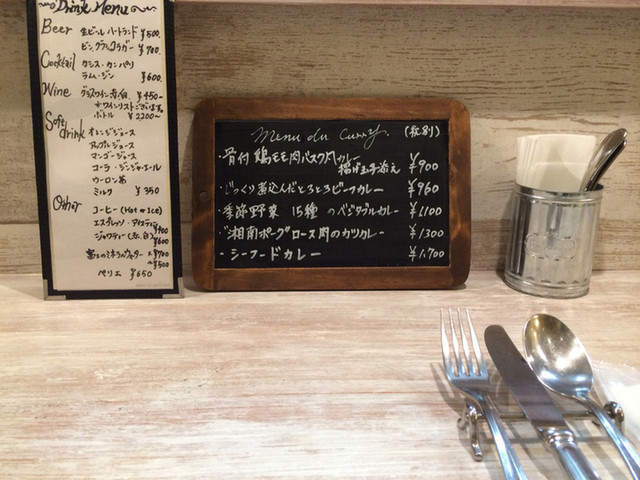 Drink Menu
Beer 生ビール ハートランド ¥500.
ビン、グラン ラガー ¥700.
Cocktail カシス・カンパリ
ラム・ジン ¥600.
Wine グラスワイン 赤/白 ¥450~
※ワインリストございます。
ボトル ¥2200~
Soft drink オレンジジュース
アップルジュース
マンゴージュース
コーラ・ジンジャエール
ウーロン茶
ミルク ¥350
Other
コーヒー (Hot or Ice)
¥400
ジャワティー (赤、白) ¥600
富士のミネラルウォーター L ¥700
¥500
ペリエ ¥650
Menu du Curry. (税別)
・骨付鶏モモ肉バスク風カレー
揚げ玉子添え ¥900
・じっくり煮込んだとろとろビーフカレー ¥960
・季節野菜 15種 のベジタブルカレー ¥1,100
・湘南ポークロース肉のカツカレー ¥1,300
・シーフードカレー ¥1,700